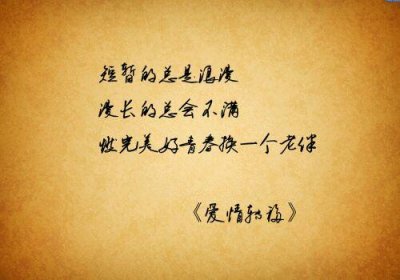 短暂的总是浪漫
漫长的总会不满
烧完美好青春换一个老伴
《爱情转移》